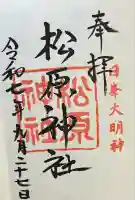 奉拝
日峯大明神
松原神社
松原神社
令和七年九月二十七日